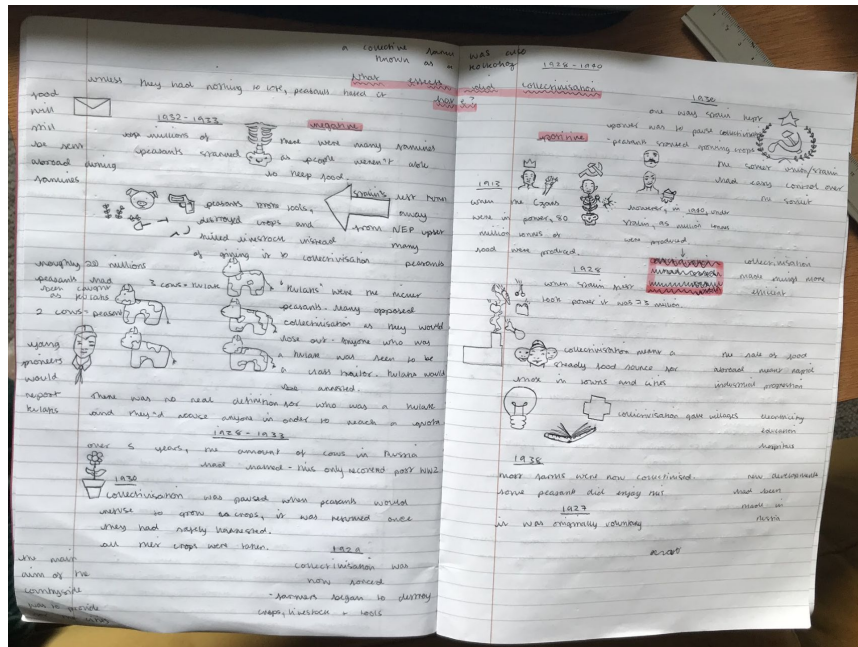 a collective farm was also
known as a kolkhoz
what effects did collectivisation
have?
unless they had nothing to live, peasants hated it
food
will
still
be sent
abroad during
famines
1932-1933
negative
millions of
peasants starved
there were many famines
as people weren't able
to keep food.
peasants broke tools,
destroyed crops and
killed livestock instead
of giving it to collectivisation
stalin's left turn
away
from NEP upset
many
peasants
roughly 20 millions
peasants had
been caught
as kulaks
3 cows = kulak
2 cows = peasant
"kulaks" were the richer
peasants. Many opposed
collectivisation as they would
lose out. Anyone who was
a kulak was seen to be
a class traitor. Kulaks would
be arrested.
young
pioneers
would
report
kulaks
there was no real definition for who was a kulak
and they'd accuse anyone in order to reach a quota
1928-1933
over 5 years, the amount of cows in Russia
had halved - this only recovered post WW2
1930
collectivisation was paused when peasants would
refuse to grow crops, it was resumed once
they had safely harvested.
all their crops were taken.
1929
collectivisation was
now forced
- farmers began to destroy
crops, livestock + tools
the main
aim of the
countryside
was to provide
1928-1940
1930
one way stalin kept
power was to pause collectivisation
- peasants started growing crops
positive
the soviet union/stalin
had easy control over
the soviet
1913
when the Czars
were in power, 80
million tonnes of
food were produced.
however, in 1940, under
stalin, 95 million tonnes
were produced.
1928
when stalin first
took power it was 73 million
collectivisation
made things more
efficient
collectivisation meant a
steady food source for
those in towns and cities
the sale of food
abroad meant rapid
industrial progression
collectivisation gave villages
electricity
education
hospitals
1938
most farms were now collectivised.
some peasant did enjoy this
new developments
had been
made in
russia
1927
it was originally voluntary